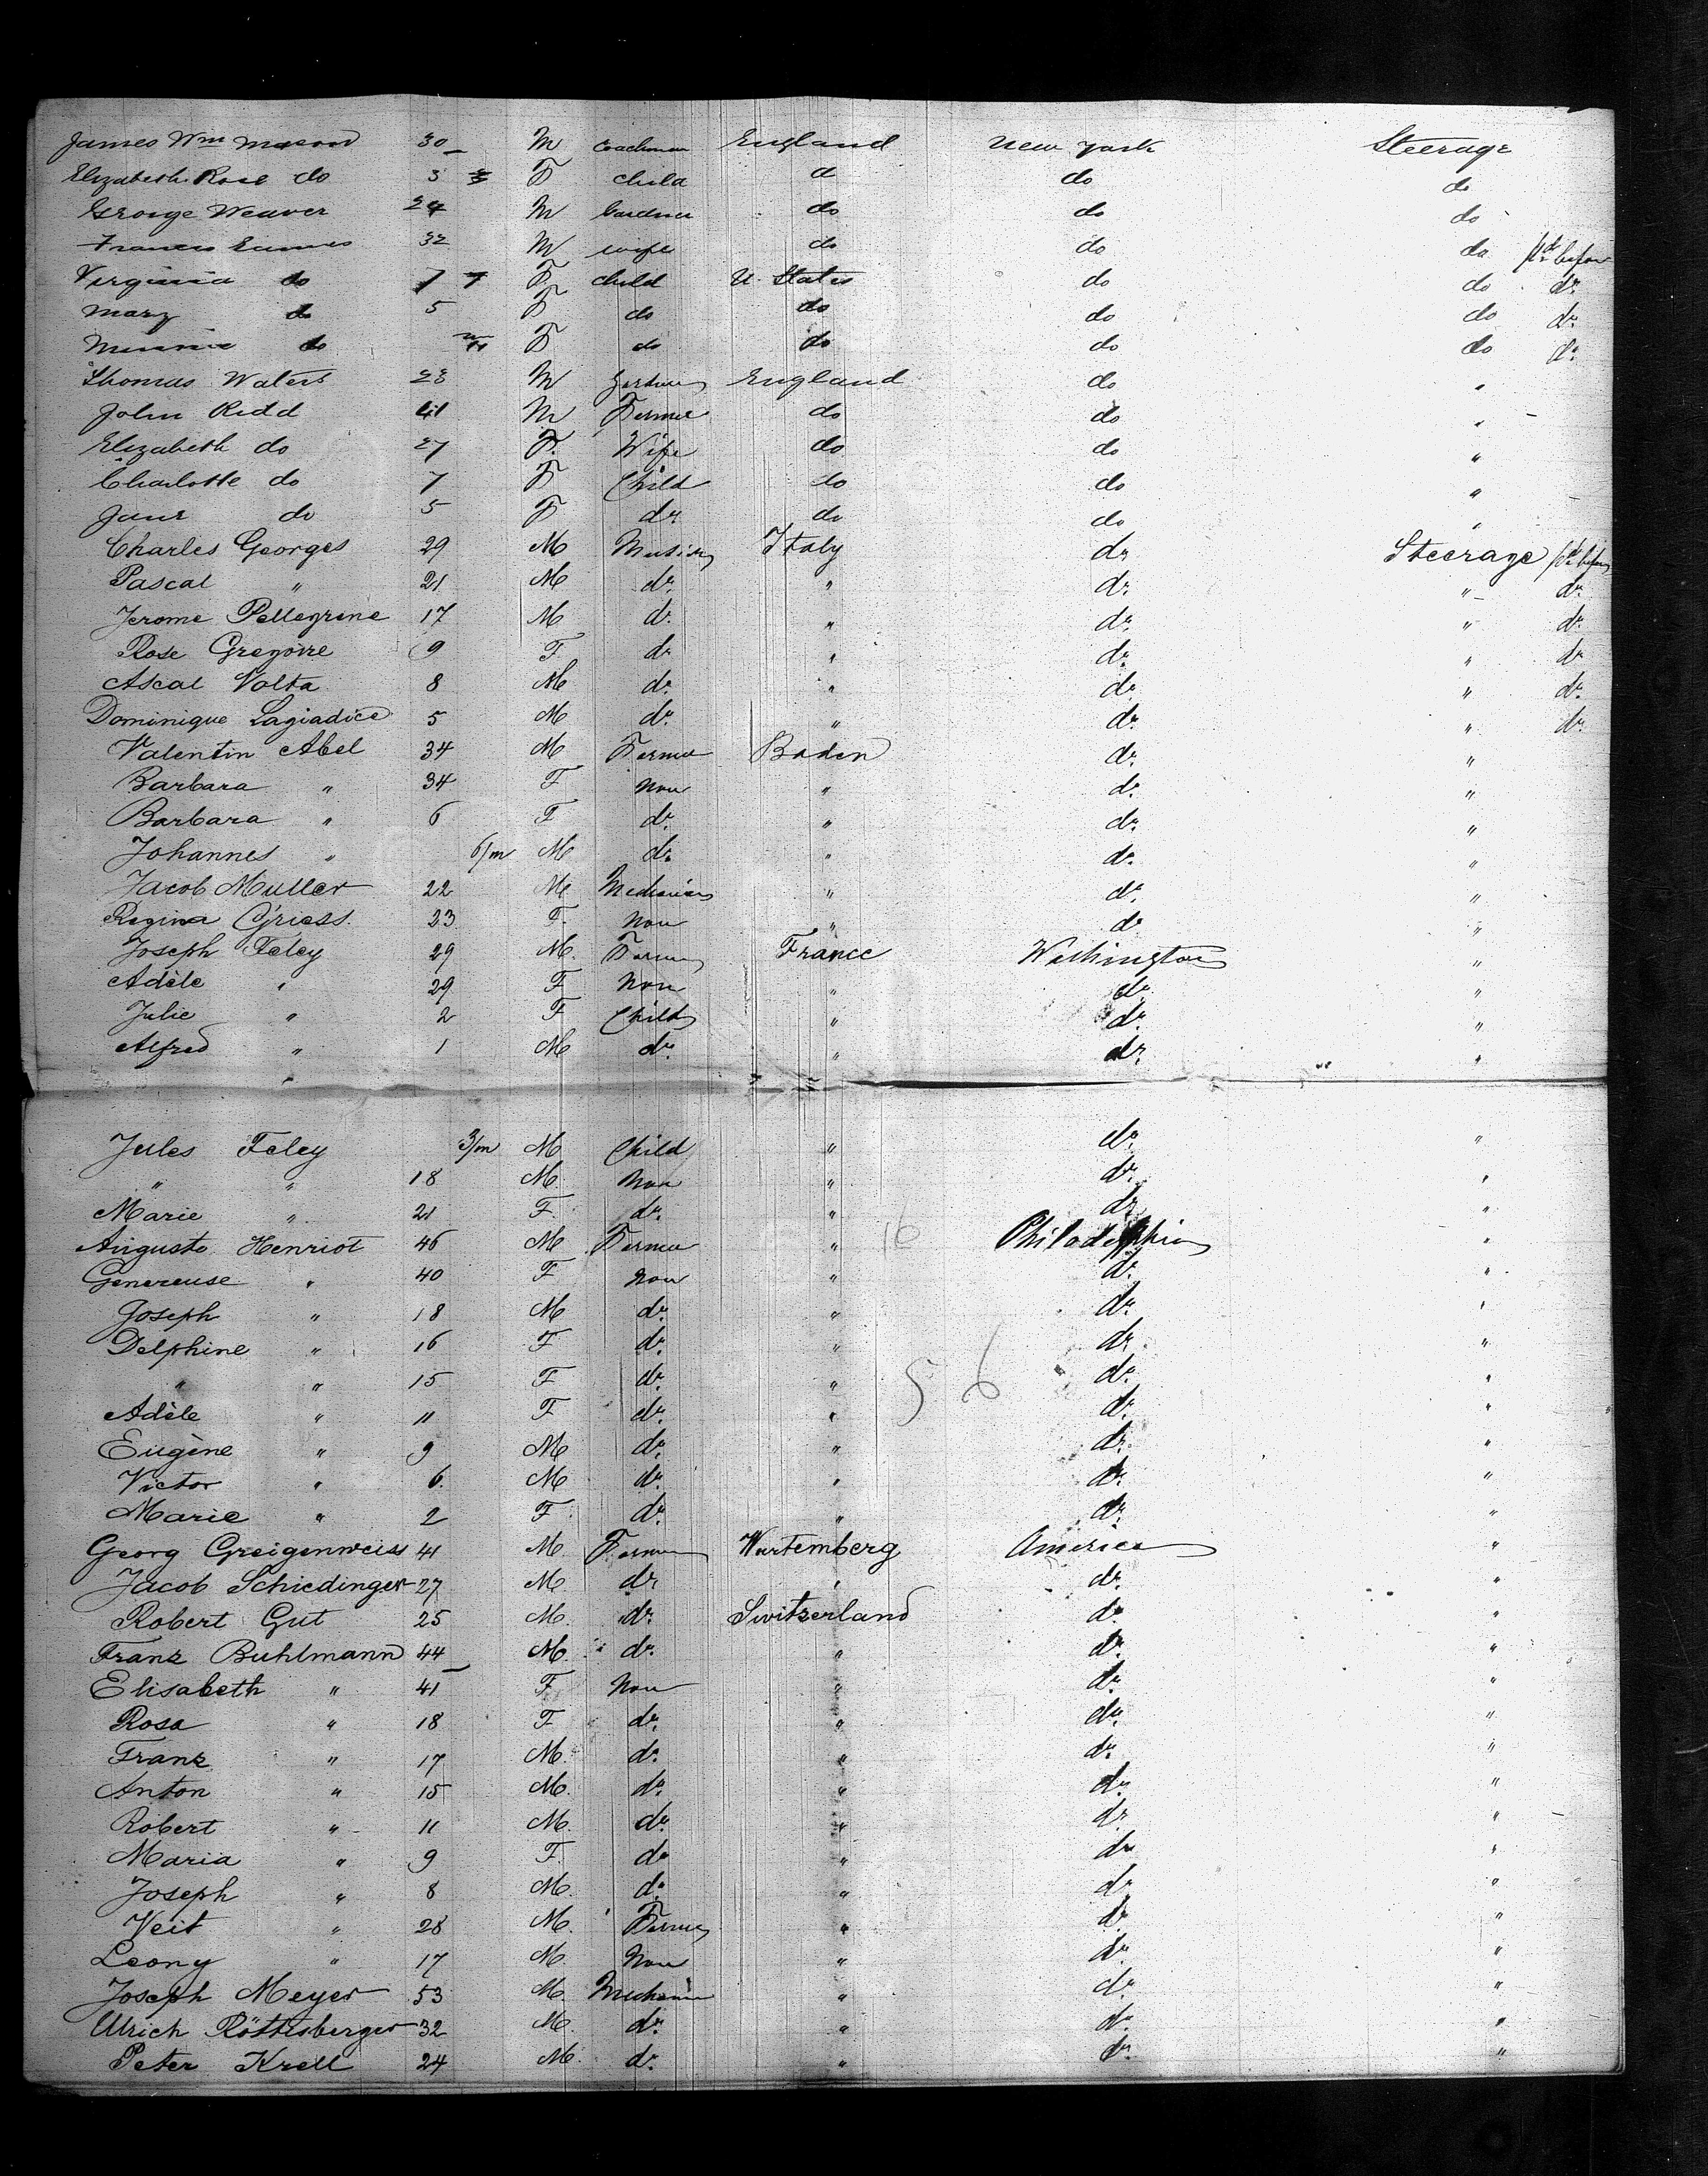 James Wm Mason 30 M Coachman England New York Steerage
Elizabeth Rose do 3 F child d do do
George Weaver 24 M Gardner do do do
Frances Eames 32 M wife do do do
Virginia do 7 F child U. States do do do
Mary do 5 F do do do do do
Minnie do 11 F do do do do do
Thomas Waters 23 M England do "
John Kidd 41 M Farmer do do "
Elizabeth do 27 F. Wife do do "
Charlotte do 7 F Child do do "
Jane do 5 F do do do "
Charles Georges 29 M Italy do Steerage
Pascal " 21 M do " do " do
Jerome Pellegrine 17 M do " do " do
Rose Gregoire 9 F do " do " do
Ascal Volta 8 M do " do " do
Dominique Lagiadice 5 M do " do " do
Valentin Abel 34 M Farmer Baden do "
Barbara " 34 F Non " do "
Barbara " 6 F do " do "
Johannes " 6/m M do " do "
Jacob Muller 22 M Mechanic " do "
Regina Griess. 23 F. Non " do "
Joseph Feley 29 M. Farmer France Washington "
Adèle " 29 F Non " do "
Julie " 2 F Child " do "
Alfred " 1 M do " do "
Jules Feley 3/m M Child " do "
" " 18 M. Non " do "
Marie " 21 F. do " do "
Auguste Henriot 46 M. Farmer " Philadelphia "
Genereuse " 40 F Non " do "
Joseph " 18 M do " do "
Delphine " 16 F do " do "
" " 15 F do " do "
Adèle " 11 F do " do "
Eugène " 9 M do " do "
Victor " 6. M do " do "
Marie " 2 F. do " do "
Georg Greigenweiss 41 M. Farmer Wurtemberg America "
Jacob Schiedinger 27 M. do " do "
Robert Gut 25 M. do Switzerland do "
Franz Buhlmann 44 M. do " do "
Elisabeth " 41 F. Non " do "
Rosa " 18 F do " do "
Franz " 17 M. do " do "
Anton " 15 M. do " do "
Robert " 11 M. do " do "
Maria " 9 F. do " do "
Joseph " 8 M. do " do "
Veit " 28 M. Farmer " do "
Leony " 17 M. Non " do "
Joseph Meyer 53 M. Mechanic " do "
Ulrich Röttisberger 32 M. do " do "
Peter Krell 24 M. do " do "
16
56